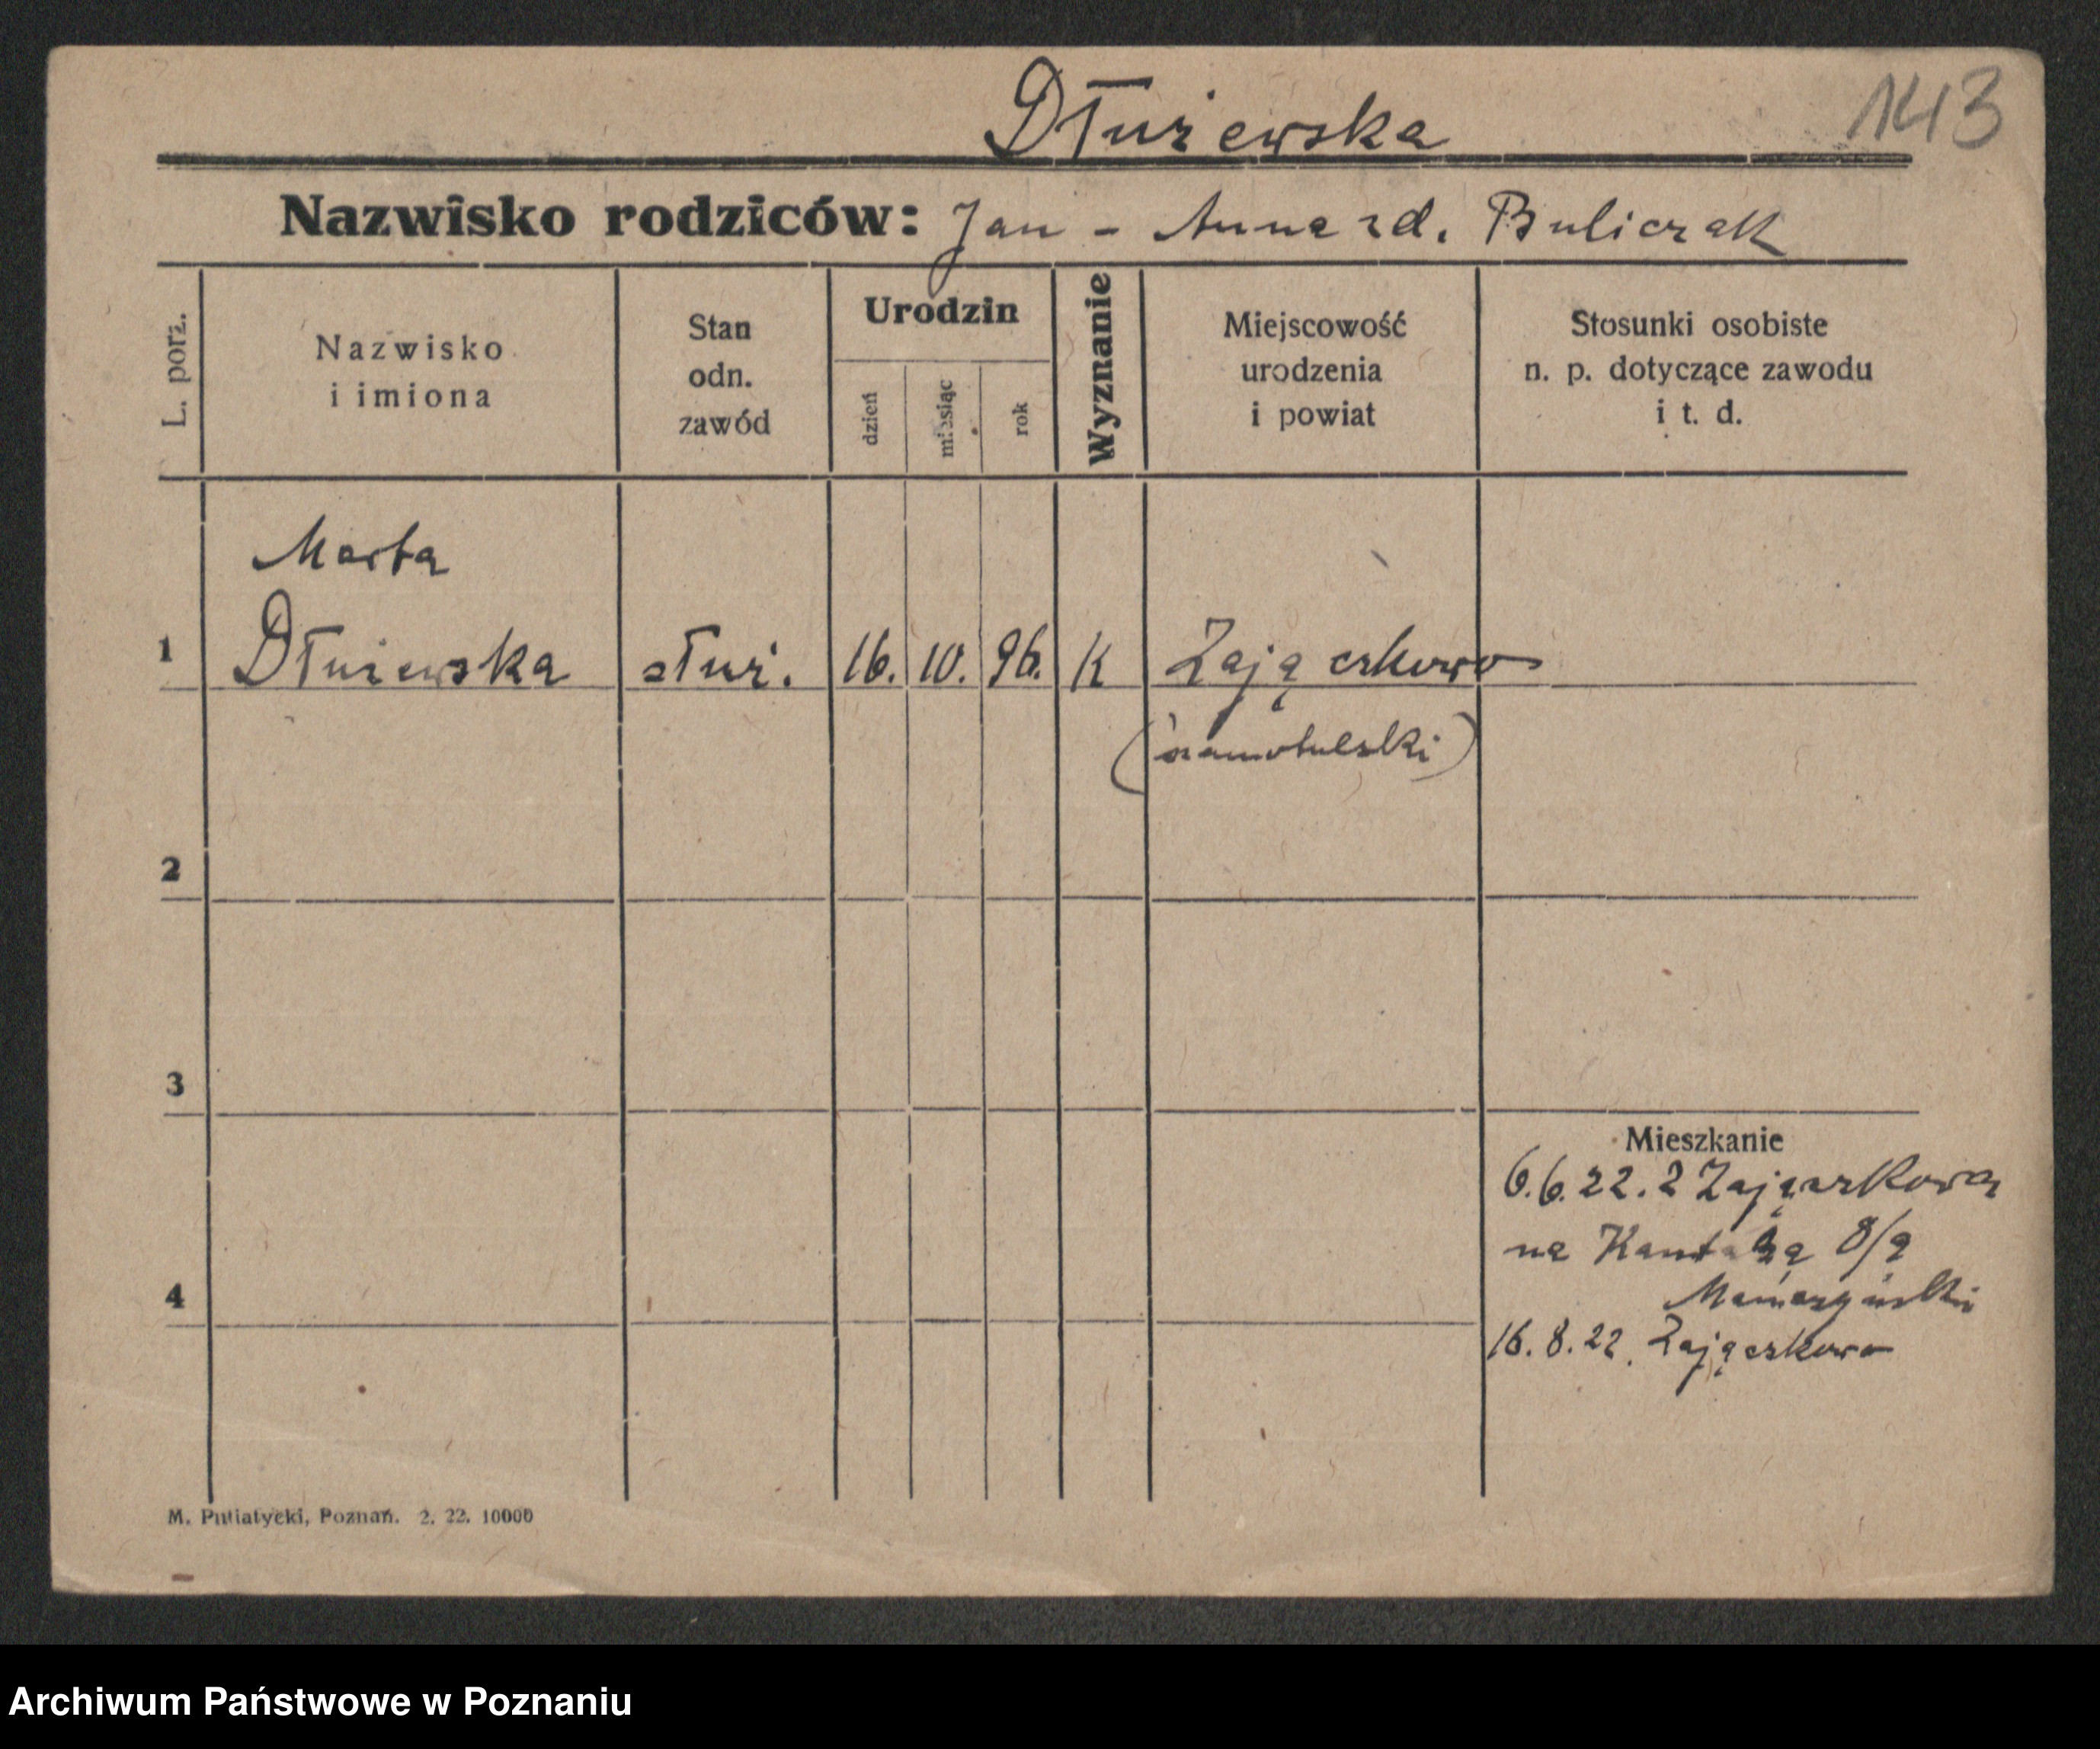 Dłużewska
143
Nazwisko rodziców: Jan - Anna zd. Buliczak
L. porz.
Nazwisko
i imiona
Stan
odn.
zawód
Urodzin
dzień
miesiąc
rok
Wyznanie
Miejscowość
urodzenia
i powiat
Stosunki osobiste
n. p. dotyczące zawodu
i t. d.
Marta
1 Dłużewska służ. 16. 10. 96. K Zajączkowo
(szamotulski)
2
3
Mieszkanie
6.6.22. z Zajączkowa
na 8/9
4
16.8.22. Zajączkowo
M. Putiatycki, Poznań. 2. 22. 10000
Archiwum Państwowe w Poznaniu